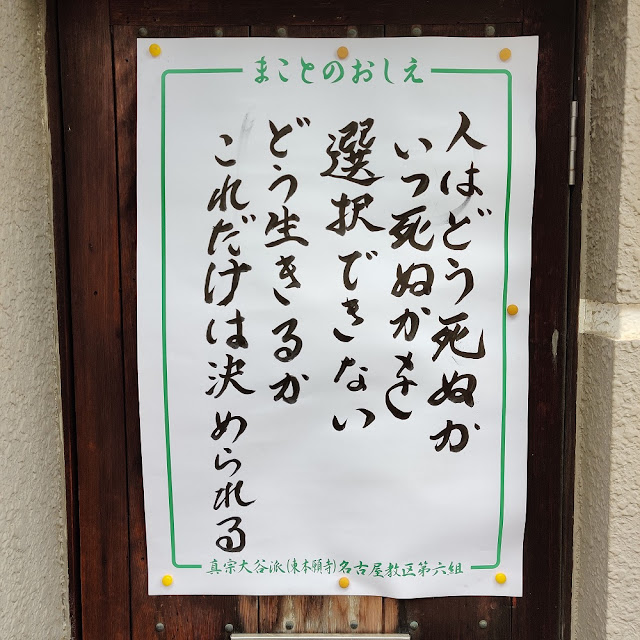 まことのおしえ
人はどう死ぬか
いつ死ぬかを
選択できない
どう生きるか
これだけは決められる
真宗大谷派(東本願寺)名古屋教区第六組